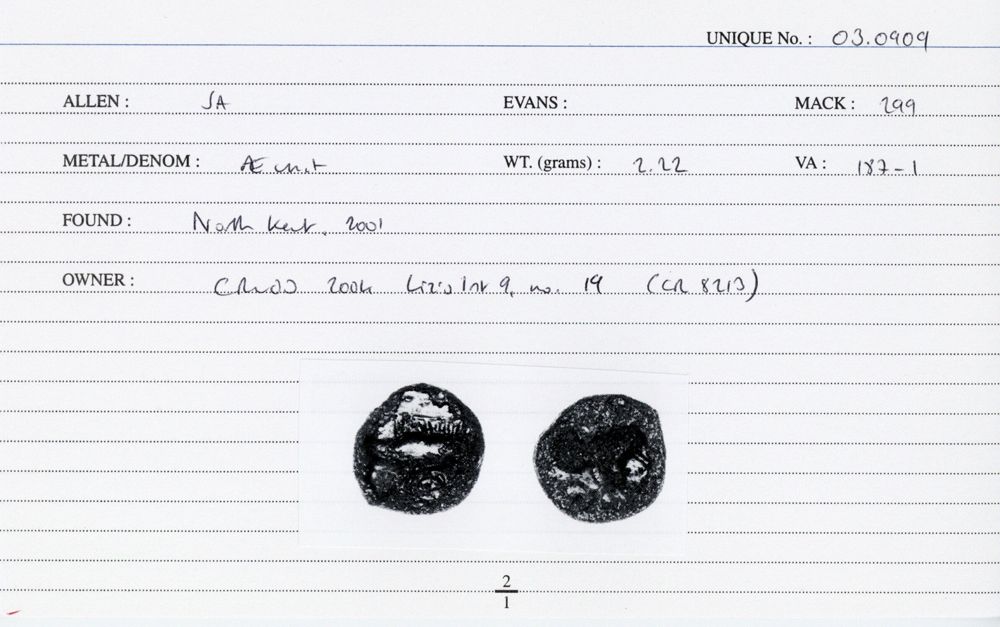 UNIQUE No. : 03.0909
ALLEN : SA EVANS : MACK : 299
METAL/DENOM : Æ unit WT. (grams) : 2.22 VA : 187-1
FOUND : North Kent, 2001
OWNER : 9, no. 19 (CR 8213)
2
1